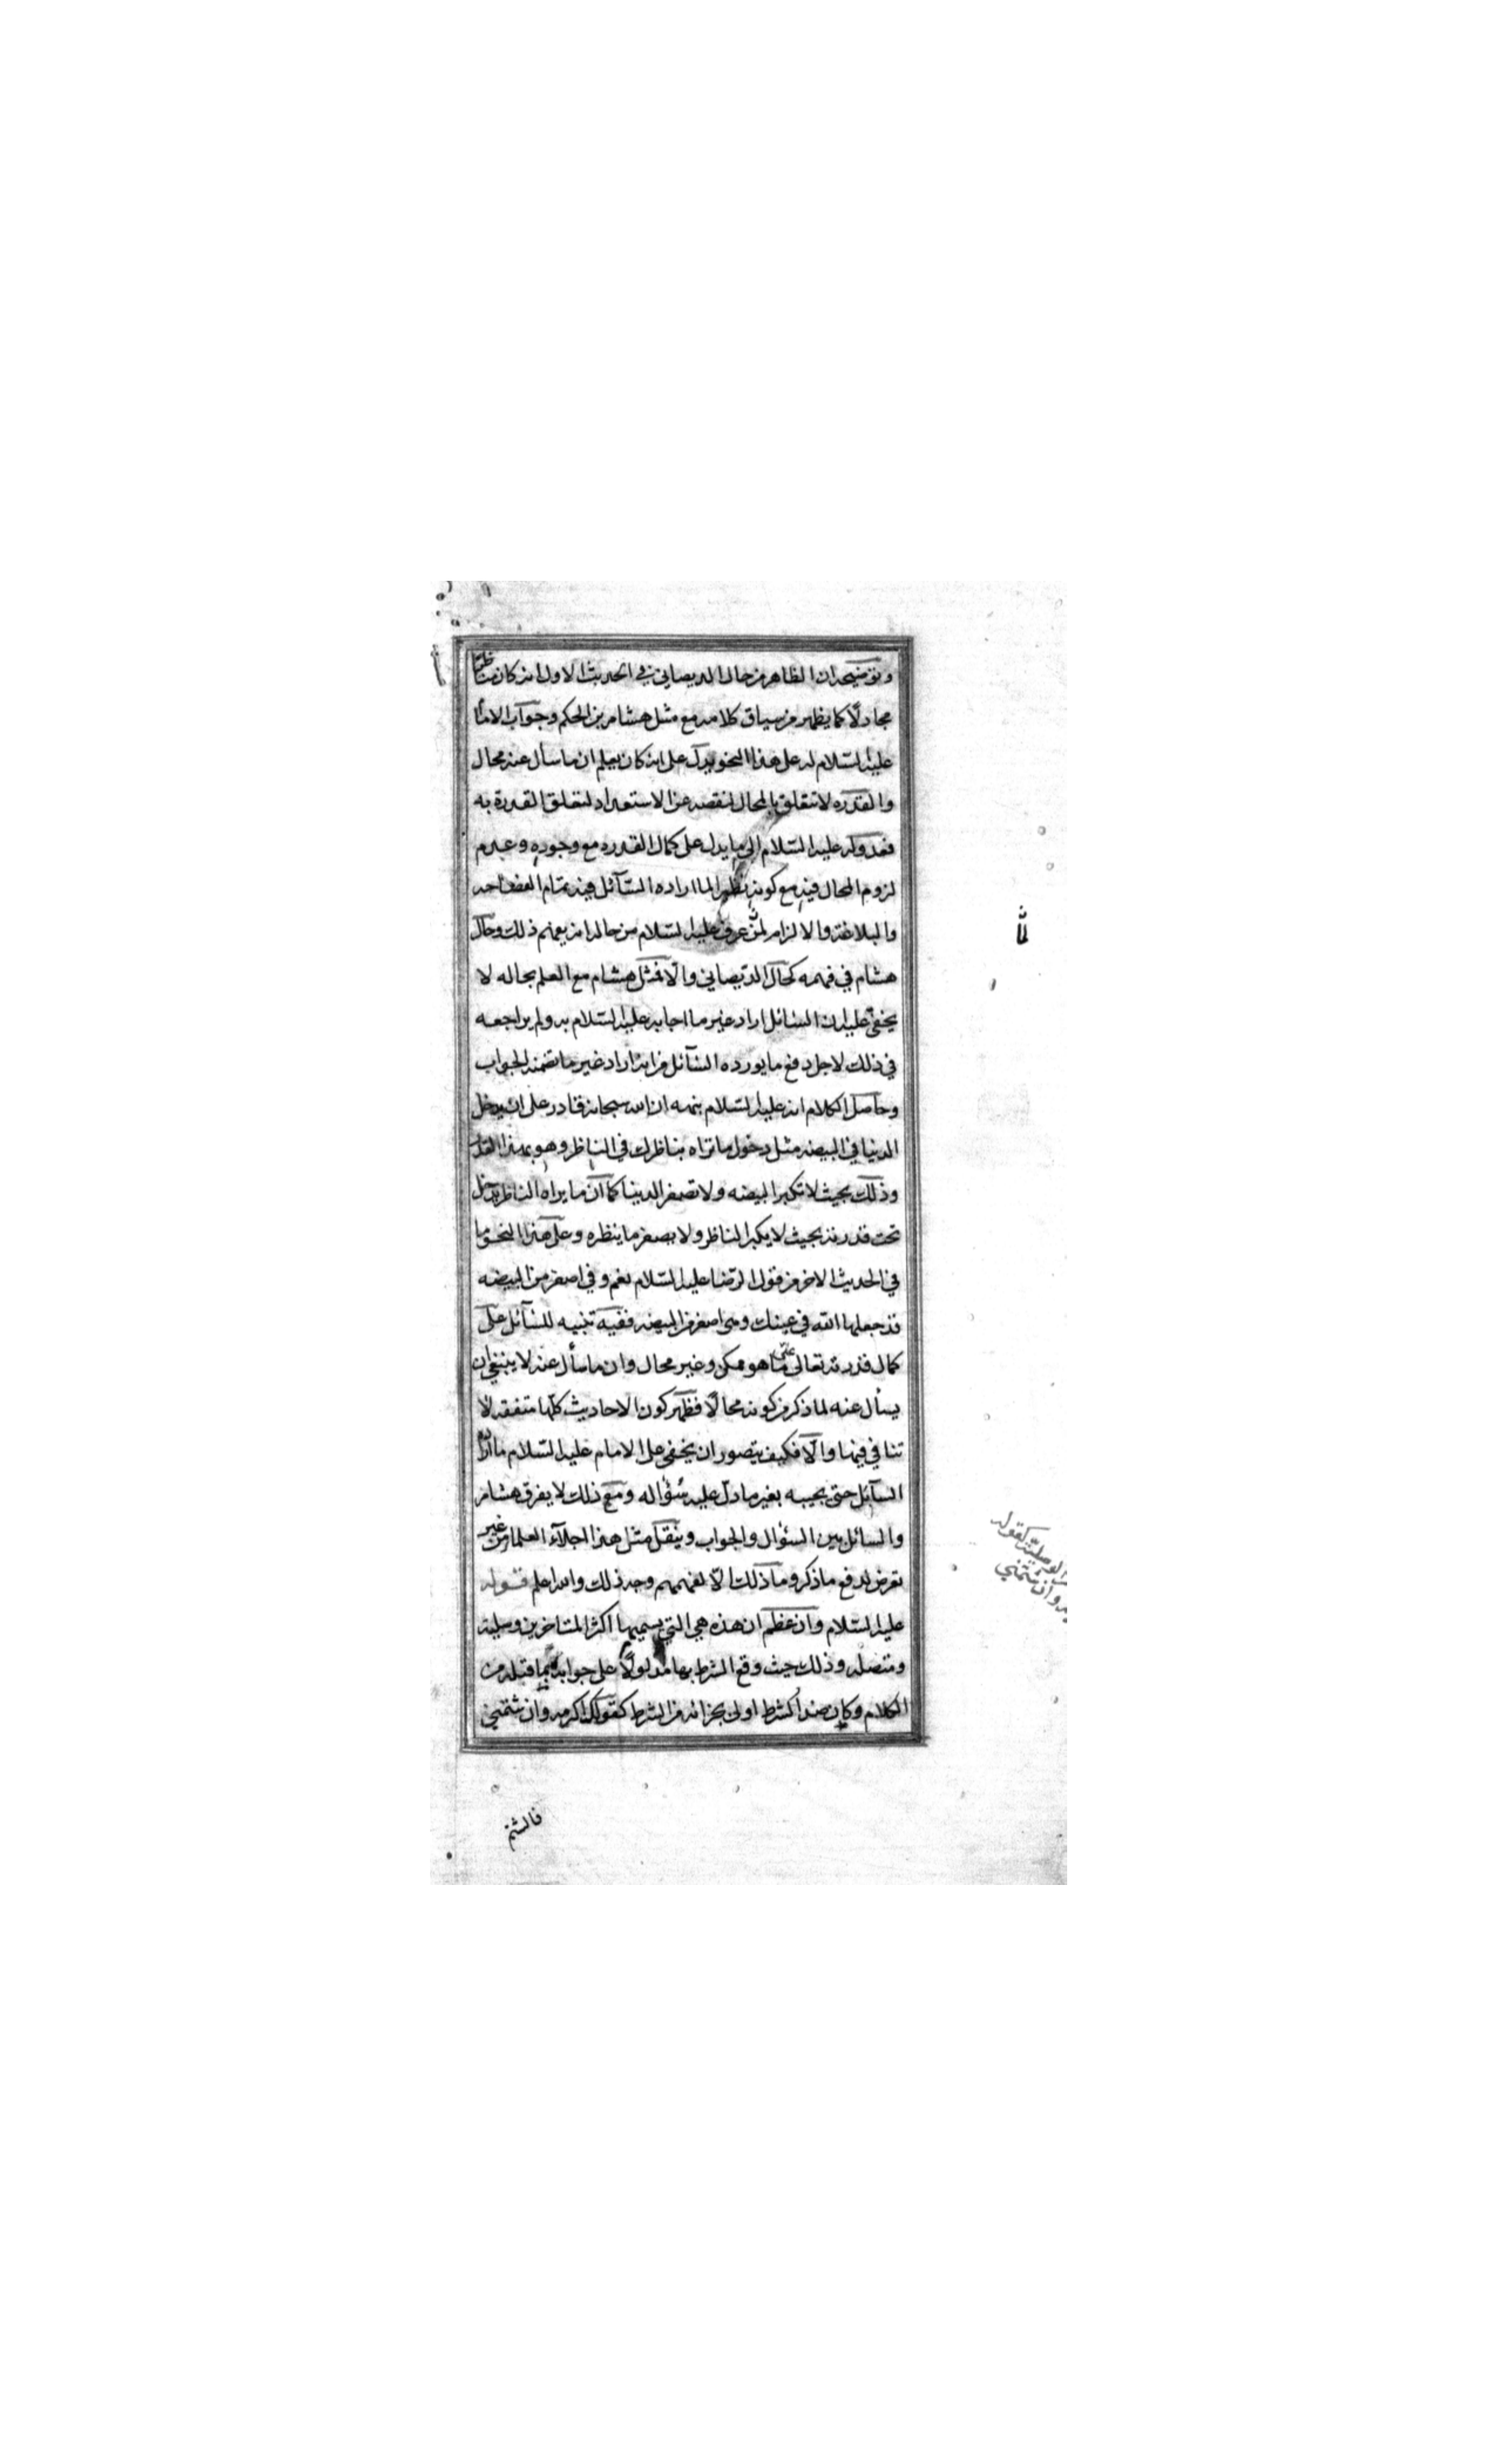 وتوضيحه ان الظاهر من حال الديصاني في الحديث الاول انه كان مناظرا
مجادلًا كما يظهر من سياق كلامه مع مثل هشام بن الحكم وجواب الامام
عليه السّلام له على هذا النحو يدلّ على انه كان يعلم ان ما سأل عنه محال
والقدره لا تتعلق بالمحال لنقصه عن الاستعداد لتعلق القدرة به
فعدوله عليه السّلام الى ما يدل على كمال القدره مع وجوده وعدم
لزوم المحال فيه مع كونه نظيرا لما اراده السّآئل فيه تمام الفصاحه
والبلاغة والالزام لمن عرف عليه السّلام من حاله انه يفهم ذلك وحال
هشام في فهمه كحال الديّصاني والّا فمثل هشام مع العلم بحاله لا
يخفى عليه ان السّائل اراد غير ما اجابه عليه السّلام به ولم يراجعه
في ذلك لاجل دفع ما يورده السّآئل من انه اراد غير ما تضمنه الجواب
وحاصل الكلام انه عليه السّلام نبهه ان الله سبحانه قادر على ان يدخل
الدنيا في البيضه مثل دخول ما تراه بناظرك في الناظر وهو بهذا القدر
وذلك بحيث لا تكبر البيضه ولا تصغر الدنيا كما انّ ما يراه الناظر يدخل
تحت قدرته بحيث لا يكبر الناظر ولا يصغر ما ينظره وعلى هذا النحو ما
في الحديث الاخر من قول الرّضا عليه السّلام نعم وفي اصغر من البيضه
قد جعلها الله في عينك وهي اصغر من البيضه ففيه تنبيه للسّآئل على
كمال قدرته تعالى على ما هو ممكن وغير محال وان ما سأل عنه لا ينبغي ان
يسأل عنه لما ذكر من كونه محالًا فظهر كون الاحاديث كلّها متفقه لا
تنافي فيها والّا فكيف يتصور ان يخفى على الامام عليه السّلام ما اراده
السآئل حتى يجيبه بغير ما دلّ عليه سُؤاله ومع ذلك لا يفرق هشام
والسائل بين السؤال والجواب وينقل مثل هذا اجلّآء العلما من غير
تعرض لدفع ما ذكر وما ذلك الّا لفهمهم وجه ذلك والله اعلم قوله
عليه السّلام وان عظم ان هذه هي التي يسميها اكثر المتاخرين وصلية
ومتصله وذلك حيث وقع الشرط بها مدلولًا على جوابه بما قبله من
الكلام وكان ضد الشرط اولى بجزائه من الشرط كقولك اكرمه وان شتمني
لمّا
الوصلية كقوله
وان شتمني
فالشتم